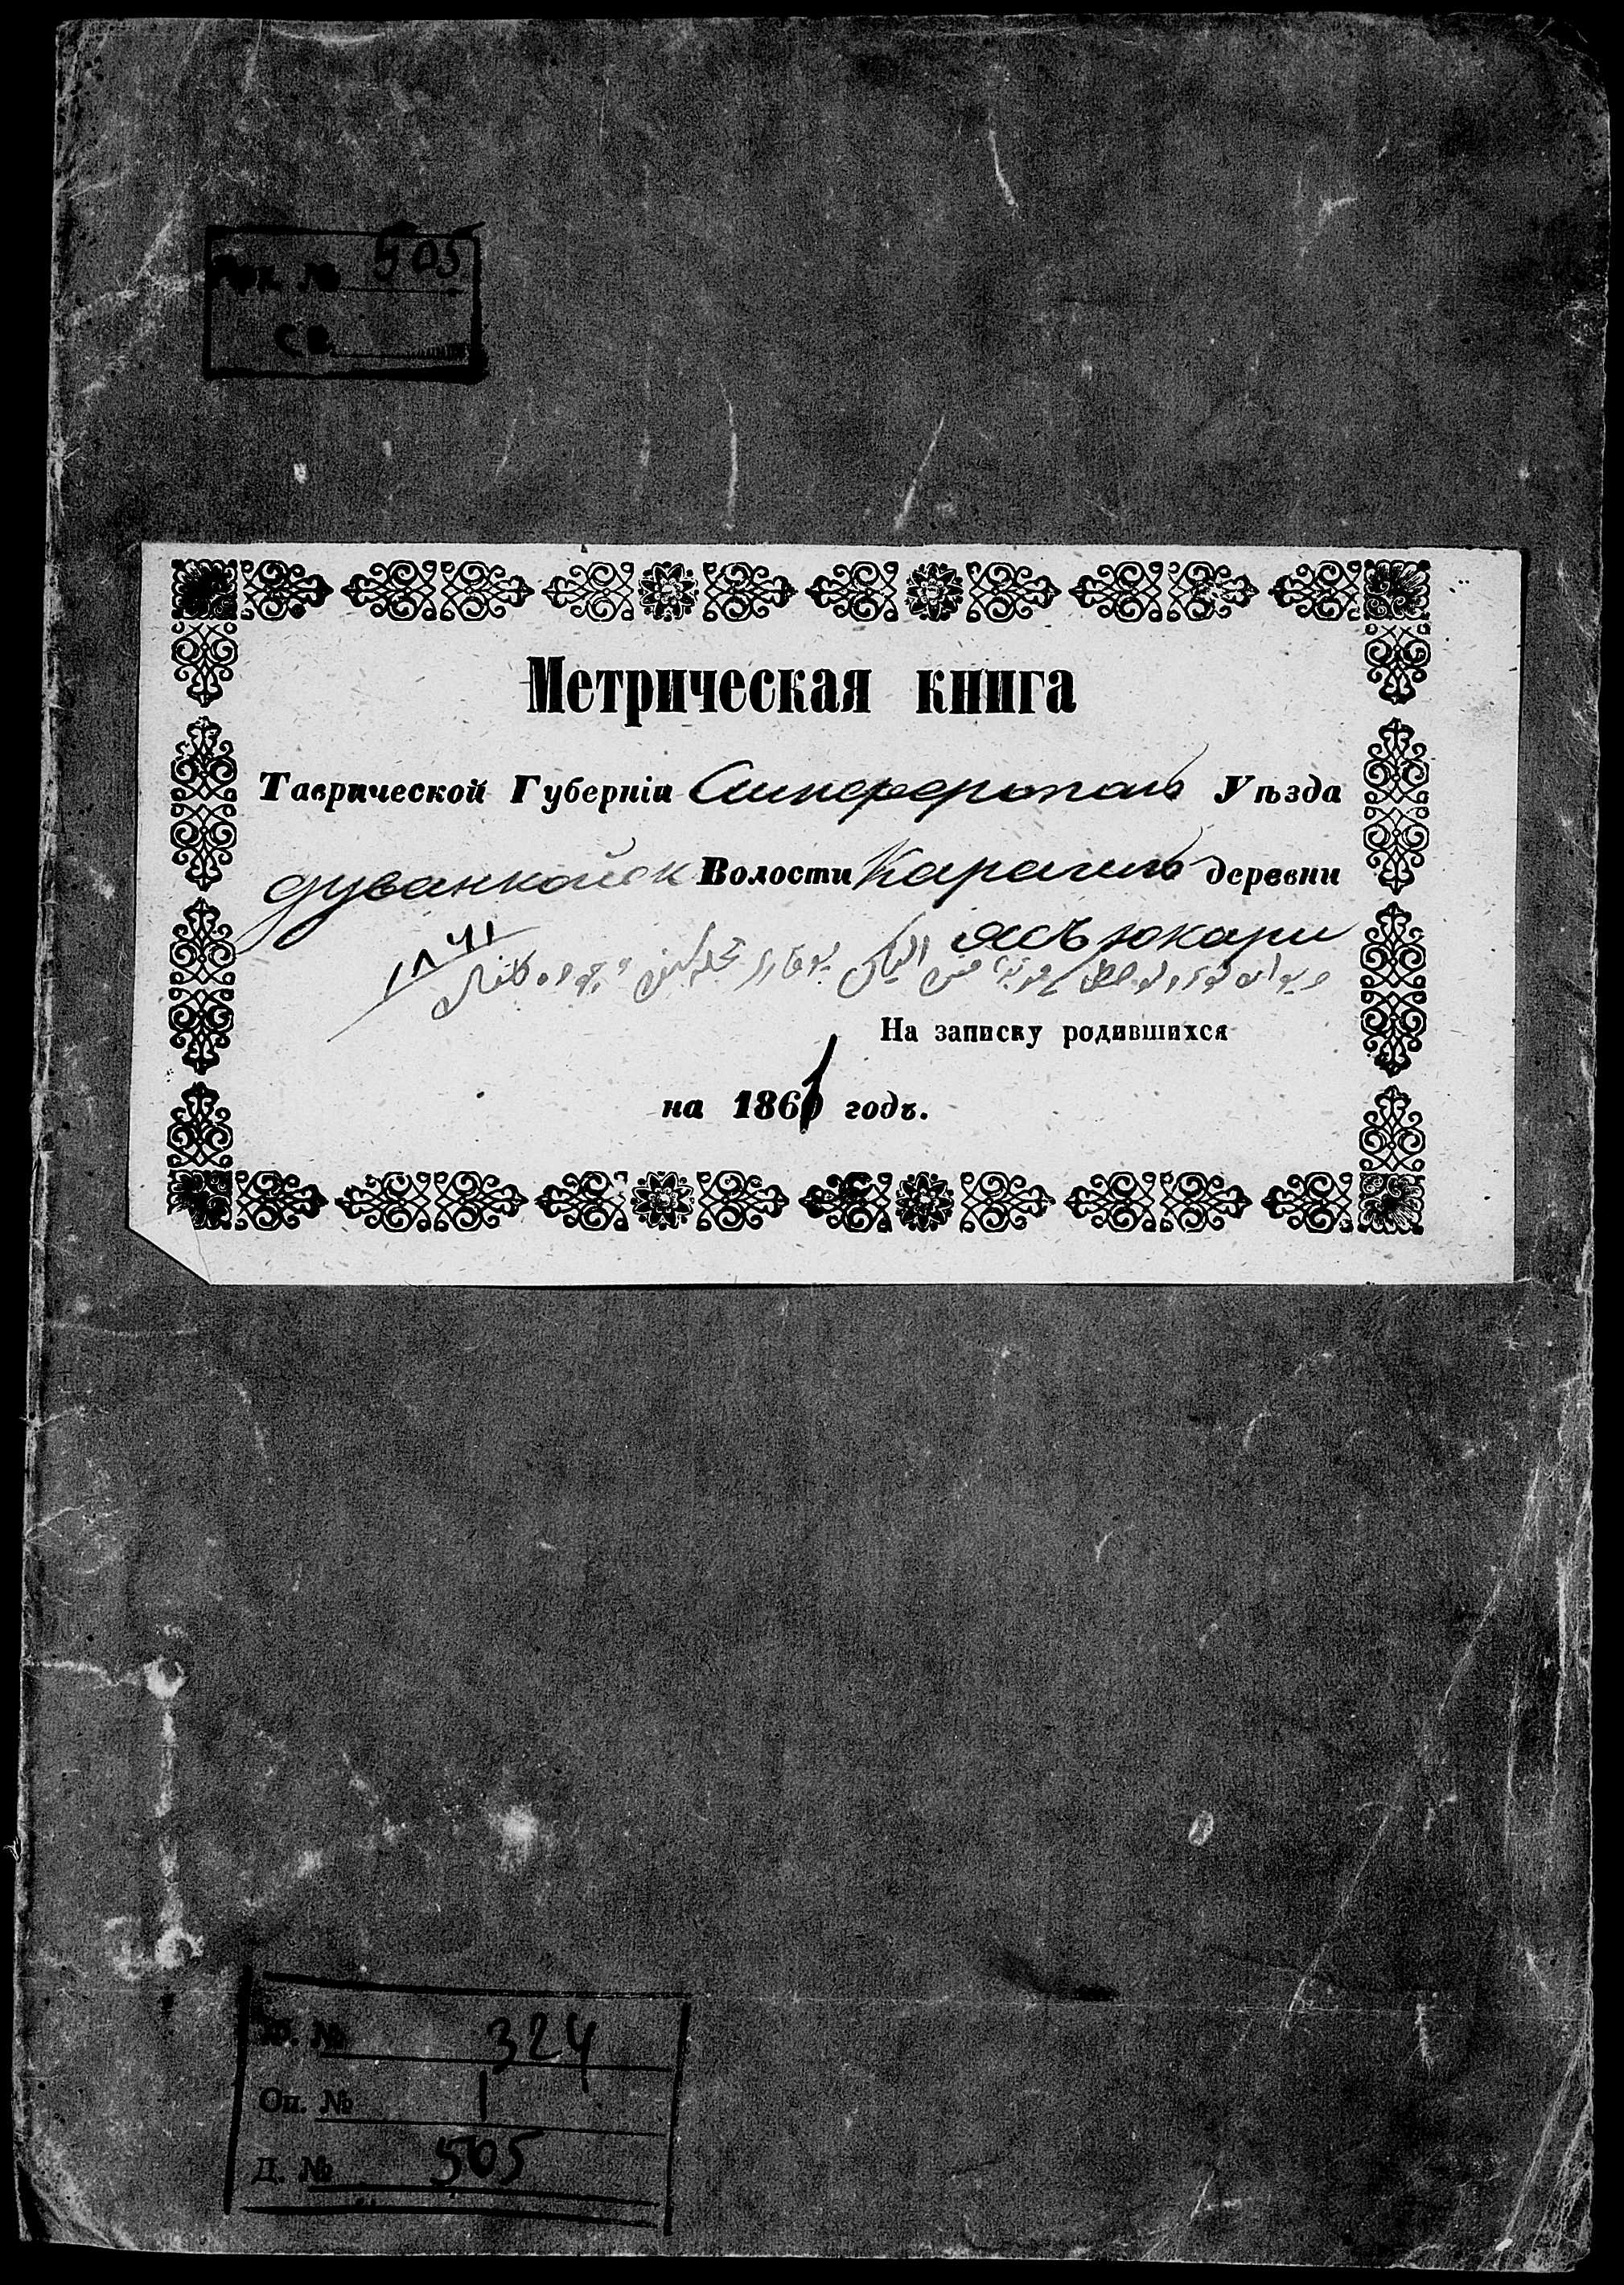 Арх. № 505
Св.
Метрическая книга
Таврической Губерніи Симферополь Уѣзда
дуванкойск Волости Карагилъ деревни
ясъ юкари
١٨٦١
На записку родившихся
на 1861 годъ.
Ф. № 324
Оп. № 1
Д. № 505